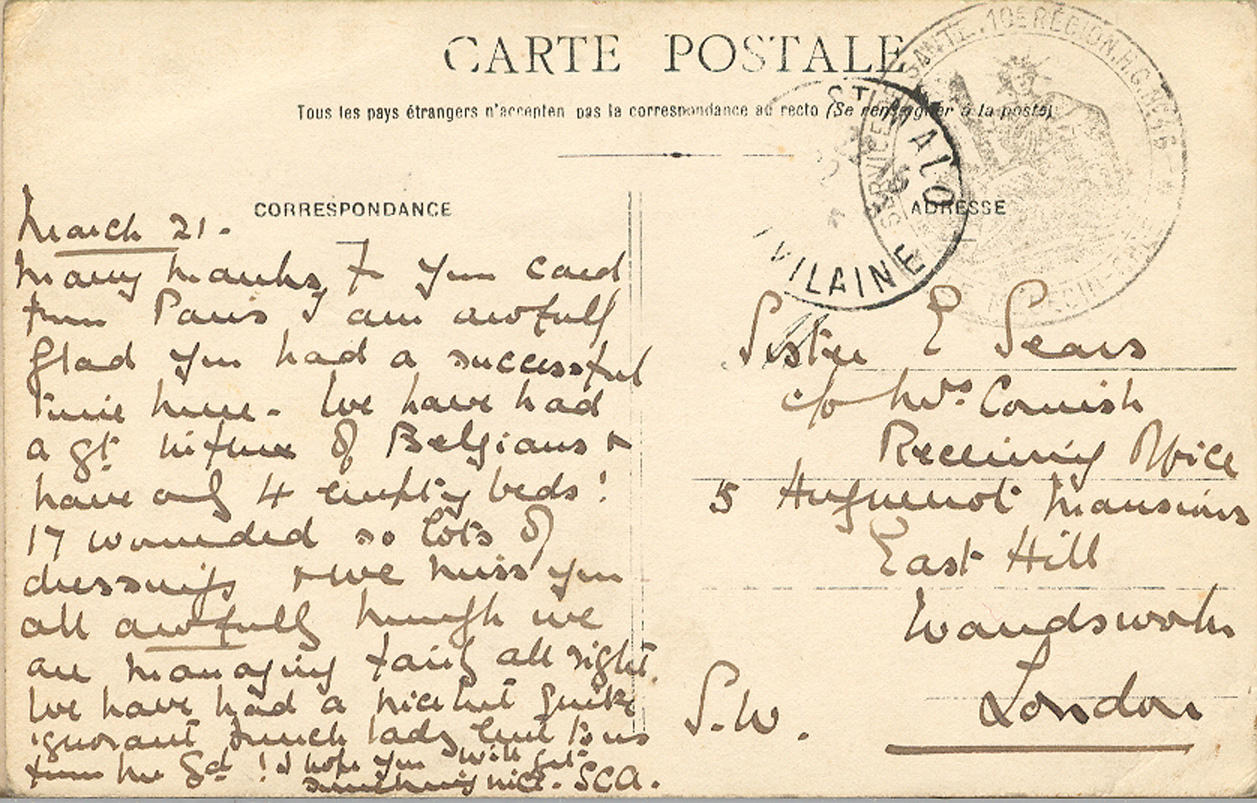 CARTE POSTALE
Tous les pays étrangers n'accepten pas la correspondance au recto (Se renseigner à la poste)
CORRESPONDANCE
March 21.
Many thanks for your card
from Paris I am awfully
glad you had a successful
time here - We have had
a gt influx of Belgians &
have only 4 empty beds!
17 wounded so lots of
dressings & we miss you
all awfully though we
are managing fairly all right.
We have had a nice but quite
ignorant French lady sent to us
from the Gd! I hope you will get
something nice. SCA.
ADRESSE
Sister E Sears
c/o Mrs. Cornish
Receiving Office
5 Huguenot Mansions
East Hill
Wandsworth
London
S.W.
ST MALO
VILAINE
SERVICE SANTE. 10E REGION. H.C. No